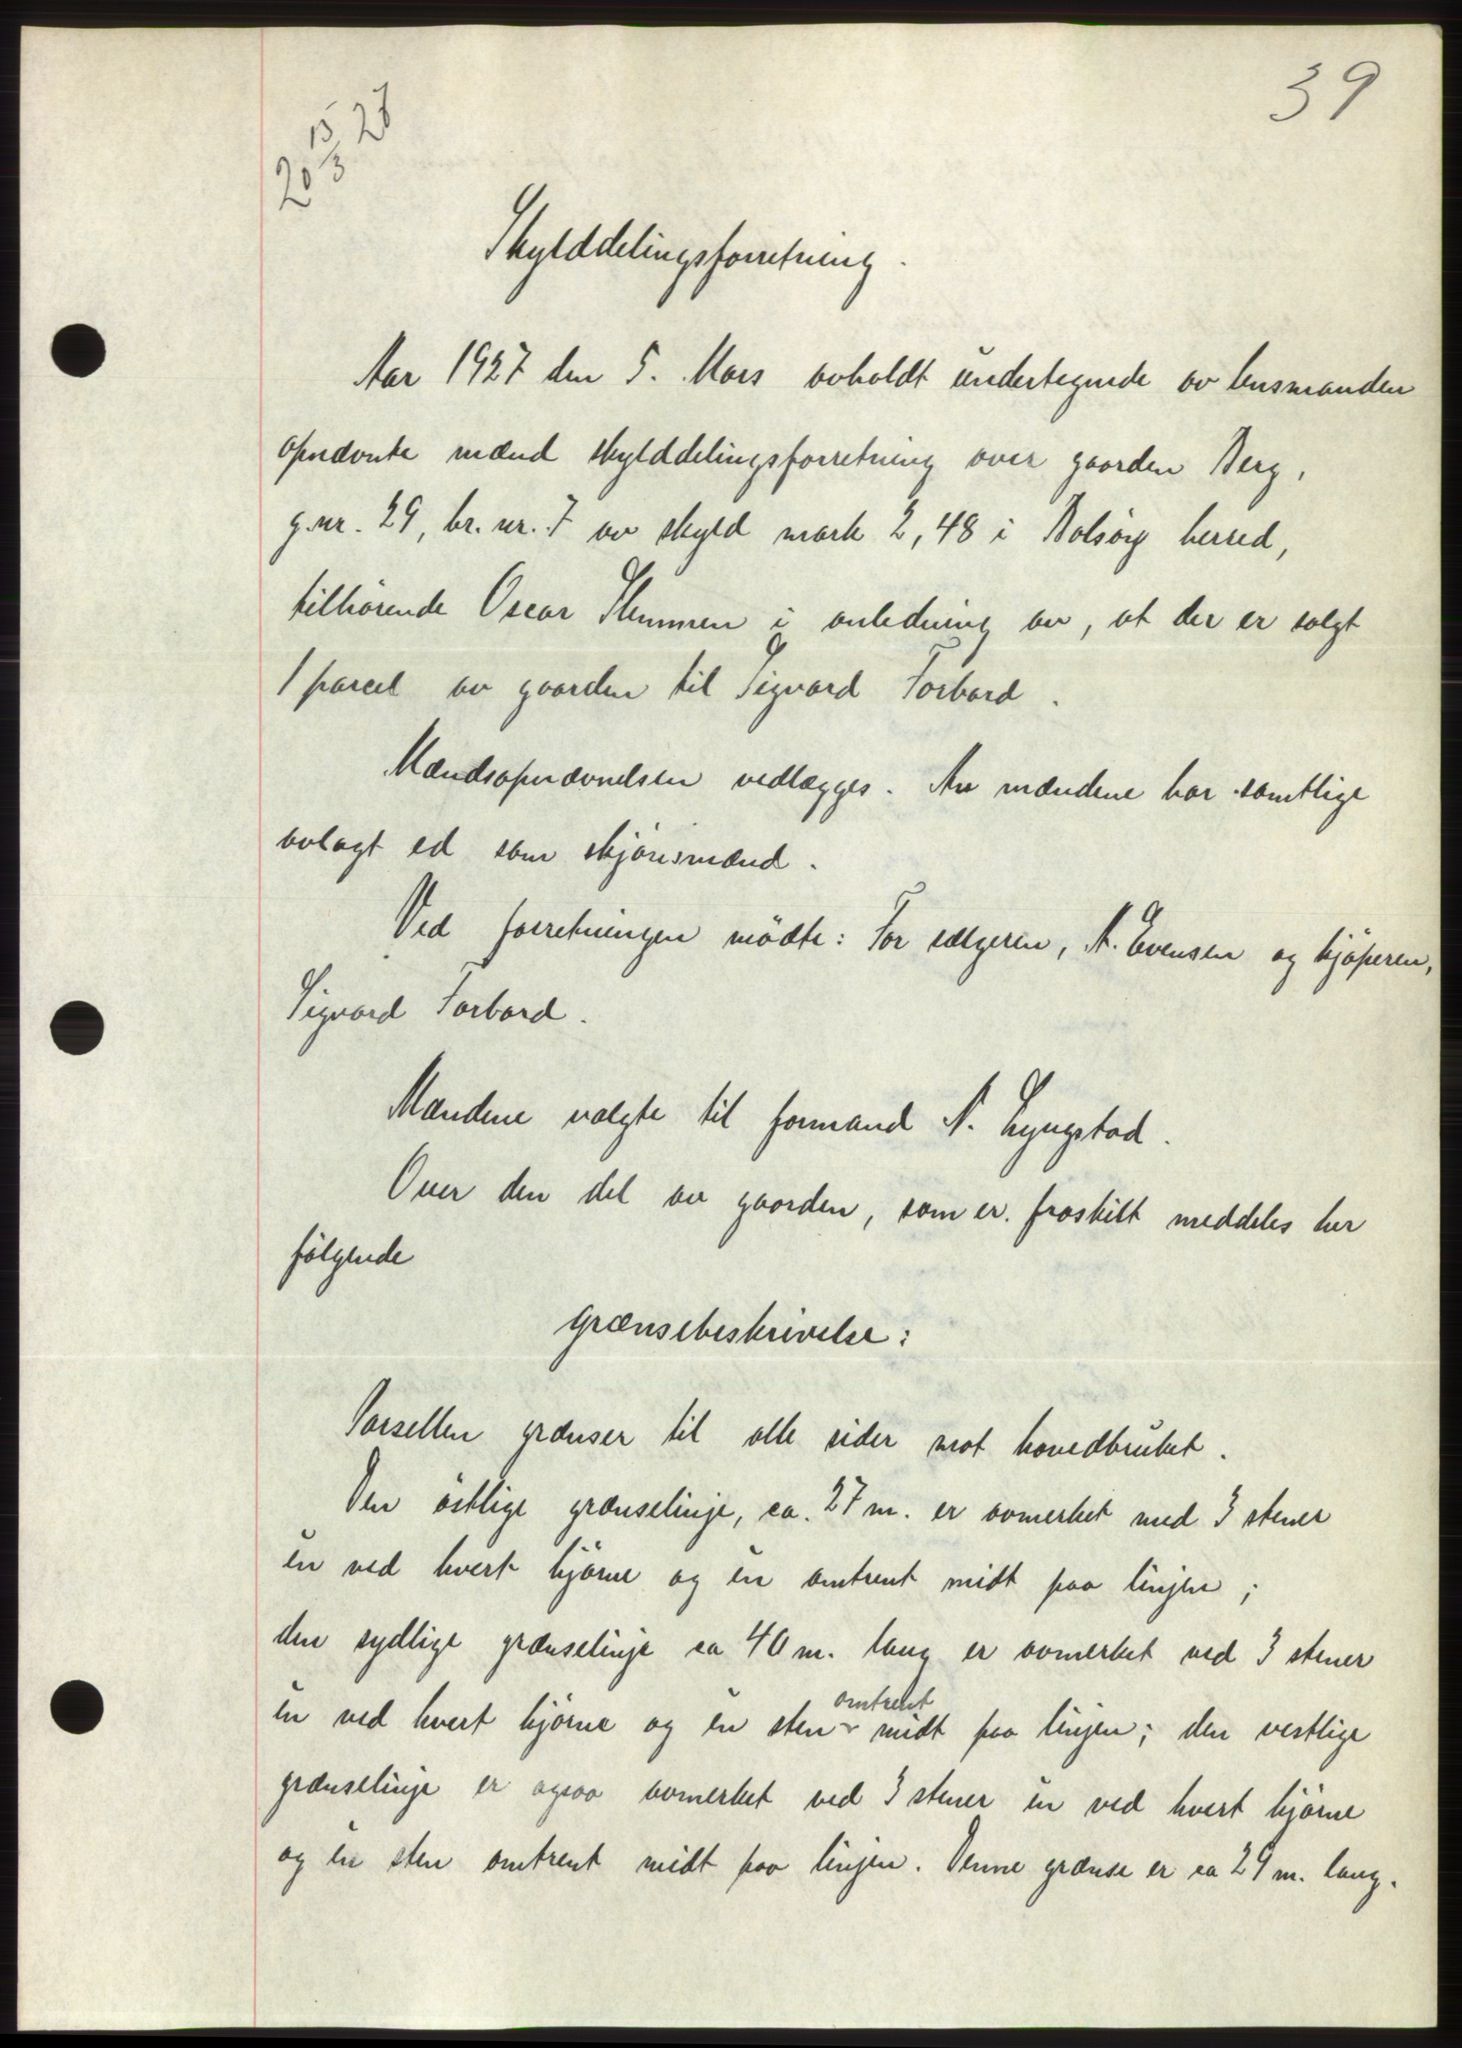 39
20 15/3 27
Skylddelingsforretning.
Aar 1927 den 5. Mars avholdt undertegnede av lensmanden
opnævnte mænd skylddelingsforretning over gaarden Berg,
g.nr. 29, br. nr. 7 av skyld mark 2,48 i Bolsøy herred,
tilhørende Oscar Stemmen i anledning av, at der er solgt
1 parcel av gaarden til Sigvard Forbord.
Mændsopnævnelsen vedlægges. Av mændene har samtlige
avlagt ed som skjønsmænd.
Ved forretningen mødte: For sælgeren, A. Evensen og kjøperen,
Sigvard Forbord.
Mændene valgte til formand N. Lyngstad.
Over den del av gaarden, som er fraskilt meddeles her
følgende
grænsebeskrivelse:
Parsellen grænser til alle sider mot hovedbruket.
Den østlige grænselinje, ca. 27 m. er avmerket med 3 stener
en ved hvert hjørne og en omtrent midt paa linjen;
den sydlige grænselinje ca 40 m. lang er avmerket ved 3 stener
en ved hvert hjørne og en sten omtrent midt paa linjen; den vestlige
grænselinje er ogsaa avmerket ved 3 stener en ved hvert hjørne
og en sten omtrent midt paa linjen. Denne grænse er ca 29 m. lang.